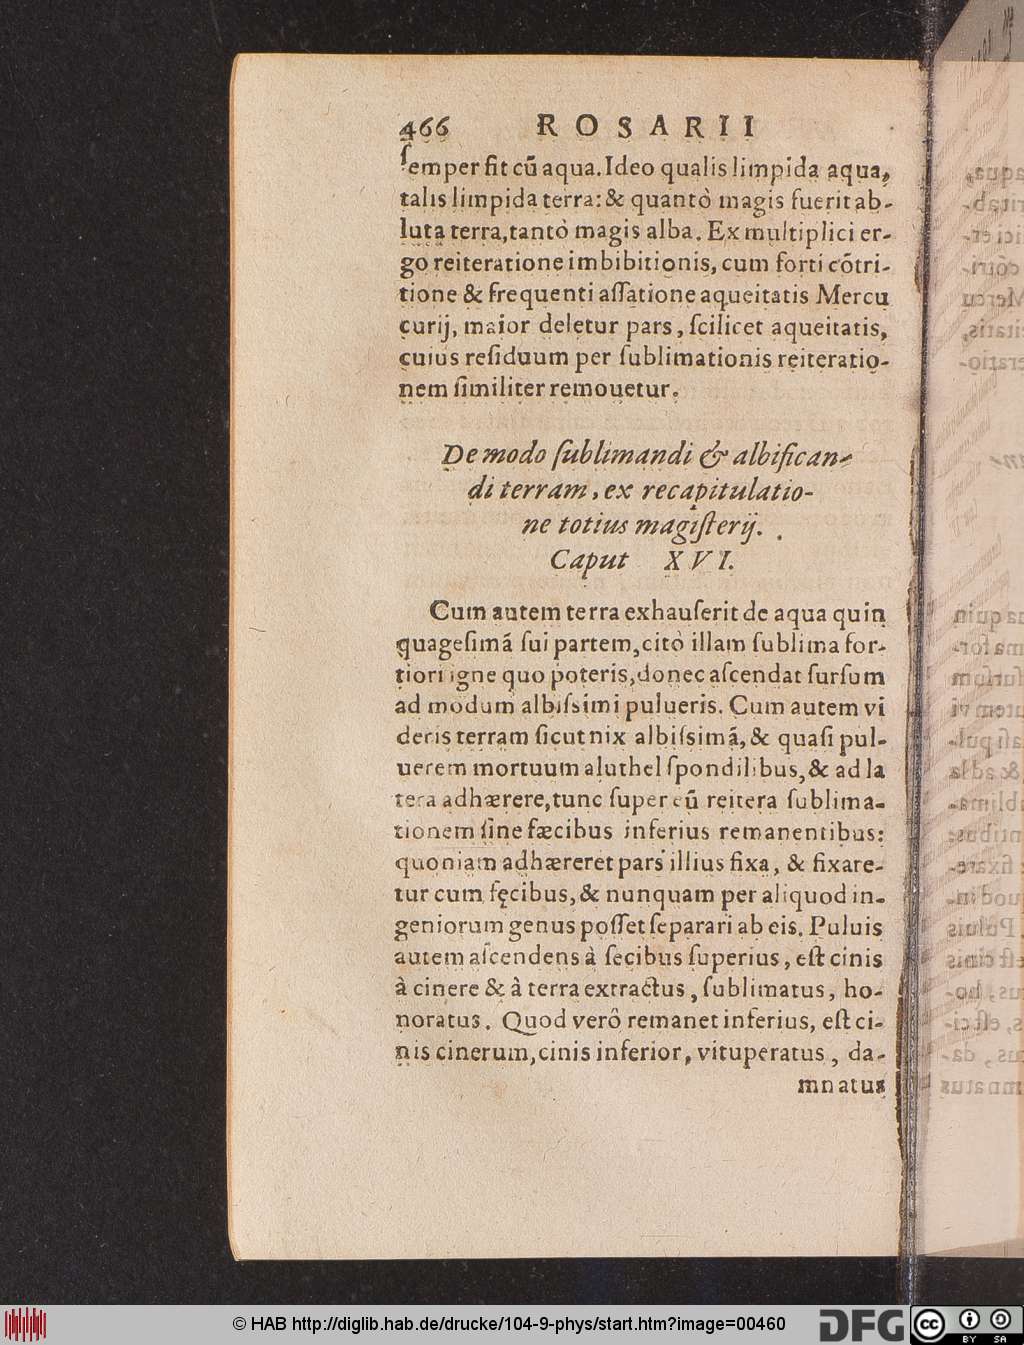 466 ROSARII
ſemper fit cũ aqua. Ideo qualis limpida aqua,
talis limpida terra: & quantò magis fuerit ab-
luta terra, tantò magis alba. Ex multiplici er-
go reiteratione imbibitionis, cum forti cõtri-
tione & frequenti aſſatione aqueitatis Mercu
curij, maior deletur pars, ſcilicet aqueitatis,
cuius reſiduum per ſublimationis reiteratio-
nem ſimiliter remouetur.
De modo ſublimandi & albifican-
di terram, ex recapitulatio-
ne totius magiſterij.
Caput XVI.
Cum autem terra exhauſerit de aqua quin
quageſimã ſui partem, citò illam ſublima for-
tiori igne quo poteris, donec aſcendat ſurſum
ad modum albiſsimi pulueris. Cum autem vi
deris terram ſicut nix albiſsimã, & quaſi pul-
uerem mortuum aluthel ſpondilibus, & ad la
tera adhærere, tunc ſuper eũ reitera ſublima-
tionem ſine fæcibus inferius remanentibus:
quoniam adhæreret pars illius fixa, & fixare-
tur cum fęcibus, & nunquam per aliquod in-
geniorum genus poſſet ſeparari ab eis. Puluis
autem aſcendens à fecibus ſuperius, eſt cinis
à cinere & à terra extractus, ſublimatus, ho-
noratus. Quod verò remanet inferius, eſt ci-
nis cinerum, cinis inferior, vituperatus, da-
mnatus
© HAB http://diglib.hab.de/drucke/104-9-phys/start.htm?image=00460
DFG
cc BY SA